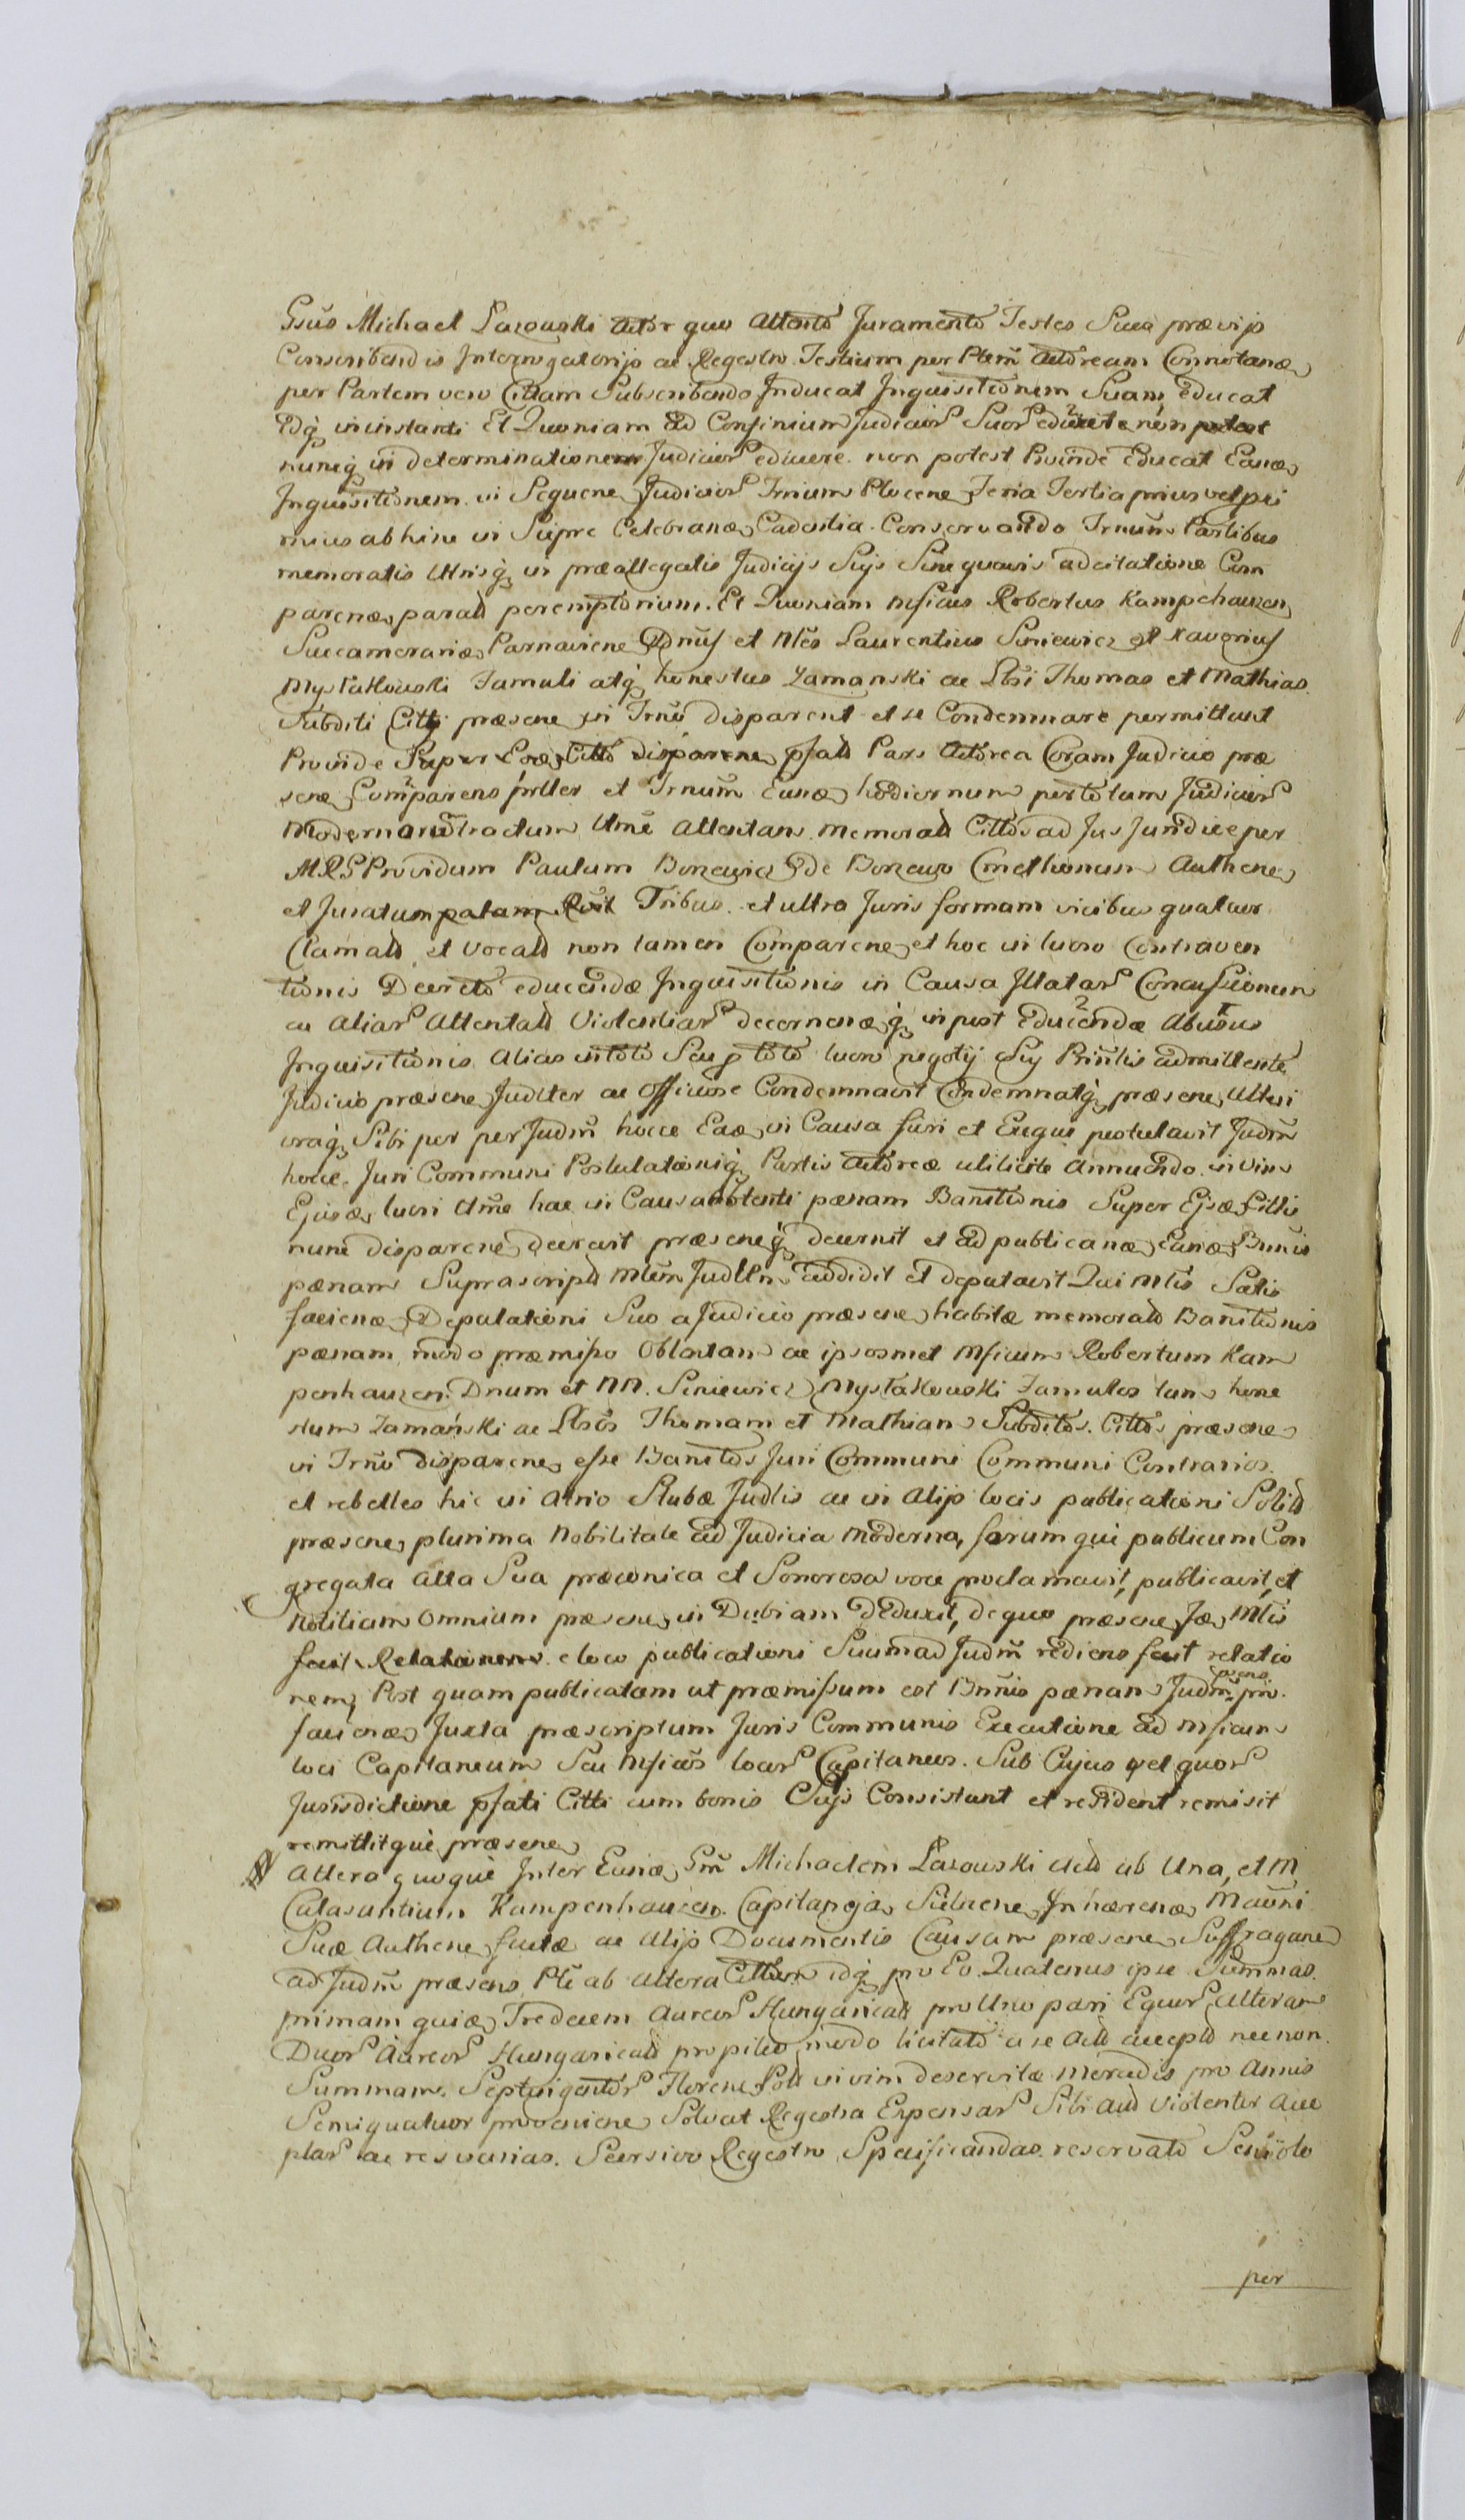 Gsus Michael Lazowski Actor quo Attento Juramento Testes Suos prævijs
Conscribendis Interrogatorijs ac Regestro Testium per Ptem Actoream Connotanæ
per Partem vero Cittam Subscribendo Inducat Inquisitionem Suam Educat
Idq in instanti Et Quoniam ad Confinium Judicior Suor educere non potest
nuncq in determinationem Judicior educere non potest Proinde Educat Eanæ
Inquisitionem in Sequene Judicior Trnium Plocene Feria Tertia prius vel pri
mius abhinc in Sierpc Celebranæ Cadentia. Conservando Trnum Partibus
memoratis Utrisq in præallegatis Judicijs Sijs Sine quavis adcitatione Com
parenæ parald peremptorium. Et Quoniam Mficus Robertus Kampehauzen
Succamerariæ Parnaviene Dnus et Nles Laurentius Siniewicz et Xaverius
Mystakowski Famuli atq honestus Zamanski ac Lbsi Thomas et Mathias
Subditi Citti præsene in Trno disparent et se Condemnare permittunt
Proinde Super Eosæ Citto disparene pfald Pars Actorea Coram Judicio præ
senæ Comparens prtter et Trnum Eunæ hodiernum per totum Judicior
Modernor tractum Ulme Attentans memorald Cittos ad Jus Juridice per
MRS Providum Paulum Borzewicz de Borzewo Cmethonem Authene
et Juratum palam Rvit Tribus. et ultra Juris formam vicibus quatuor
Clamald et Vocald non tamen Comparene et hoc in lucro Contraven
tionis Decreto educendæ Inquisitionis in Causa Illatar Concussionum
ac Aliar Attentald Violentiar decernenæq in post Educendæ Abusus
Inquisitionis Alias in toto Seu p toto lucro negotij Sui Prinlis admittente
Judicio præsene Judlter ac Officiose Condemnavit Condemnatq præsene Ulteri
oraq Sibi per per Judm hocce Eaæ in Causa fieri et Exequi postulavit Judm
hocce Juri Communi Postulationiq Partis Actoreæ utilicite Annuendo in vim
Ejusæ lucri Ulme hac in Causa obtenti pænam Bannitionis Super Ejsæ Cittis
nunc disparene decrevit præseneq decernit et ad publicanæ Eanæ Bnnis
pænam Suprascripld Mlem Judllm addidit et deputavit Qui Mlis Satis
facienæ Deputationi Suo a Judicio præsene habitæ memorald Bannitionis
pænam modo præmisso Oblatam ac ipsosmet Mficum Robertum Kam
penhauzen Dnum et NN. Siniewicz Mystakowski Famulos tum hone
stum Zamański ac Lbsos Thomam et Mathiam Subditos. Cittos præsene
in Trno disparene esse Bannitos Juri Communi Communi Contrarios
et rebelles hic in Atrio Stubæ Judlis ac in Alijs locis publicationi Solild
præsene plurima Nobilitate ad Judicia moderna forumqui publicum Con
gregata Alta Sua præconica et Sonorosa voce proclamavit, publicavit, et
Notitiam Omnium præsene in Dubiam Deduxit, de quo præsene Jæ Mlis
fecit Relationem e loco publicationi Suum ad Judm rediens fecit relatio
nem, Post quam publicatam ut præmissum est Bnnis pænam Judm præns pro
facienæ Juxta præscriptum Juris Communis Executione ad Mficum
loci Capitaneum Seu Mficos locor Capitaneos. Sub Cujus vel quor
Jurisdictione pfati Citti cum bonis Suijs Consistunt et resident remisit
remittitquè præsene
Altera quoquè Inter Eunæ Gm Michaelem Lazowski Acld ab Una, et M
Calasantium Kampenhauzen. Capitaneja Subiene Inhærenæ Mauni
Suæ Authene factæ ac Alijs Documentis Causam præsene Suffragane
ad Judm præsens Pte ab altera Cittum idq pro Eo Quatenus ipse Summas
primam quiæ Tredecem Aureor Hungaricald pro Uno pari Equor, Alteram
Duor Aureor Hungaricald pro pileo modo licitald a se Acld accepld necnon
Summam Septuigentor Florene Pold in vim deservitæ mercedis pro Annis
Semiquatuor proveniene Solvat Regestra Expensar Sibi Acld Violenter Acce
ptar ac res varias. Seorsivo Regestro Specificandas reservato Seviolo
per